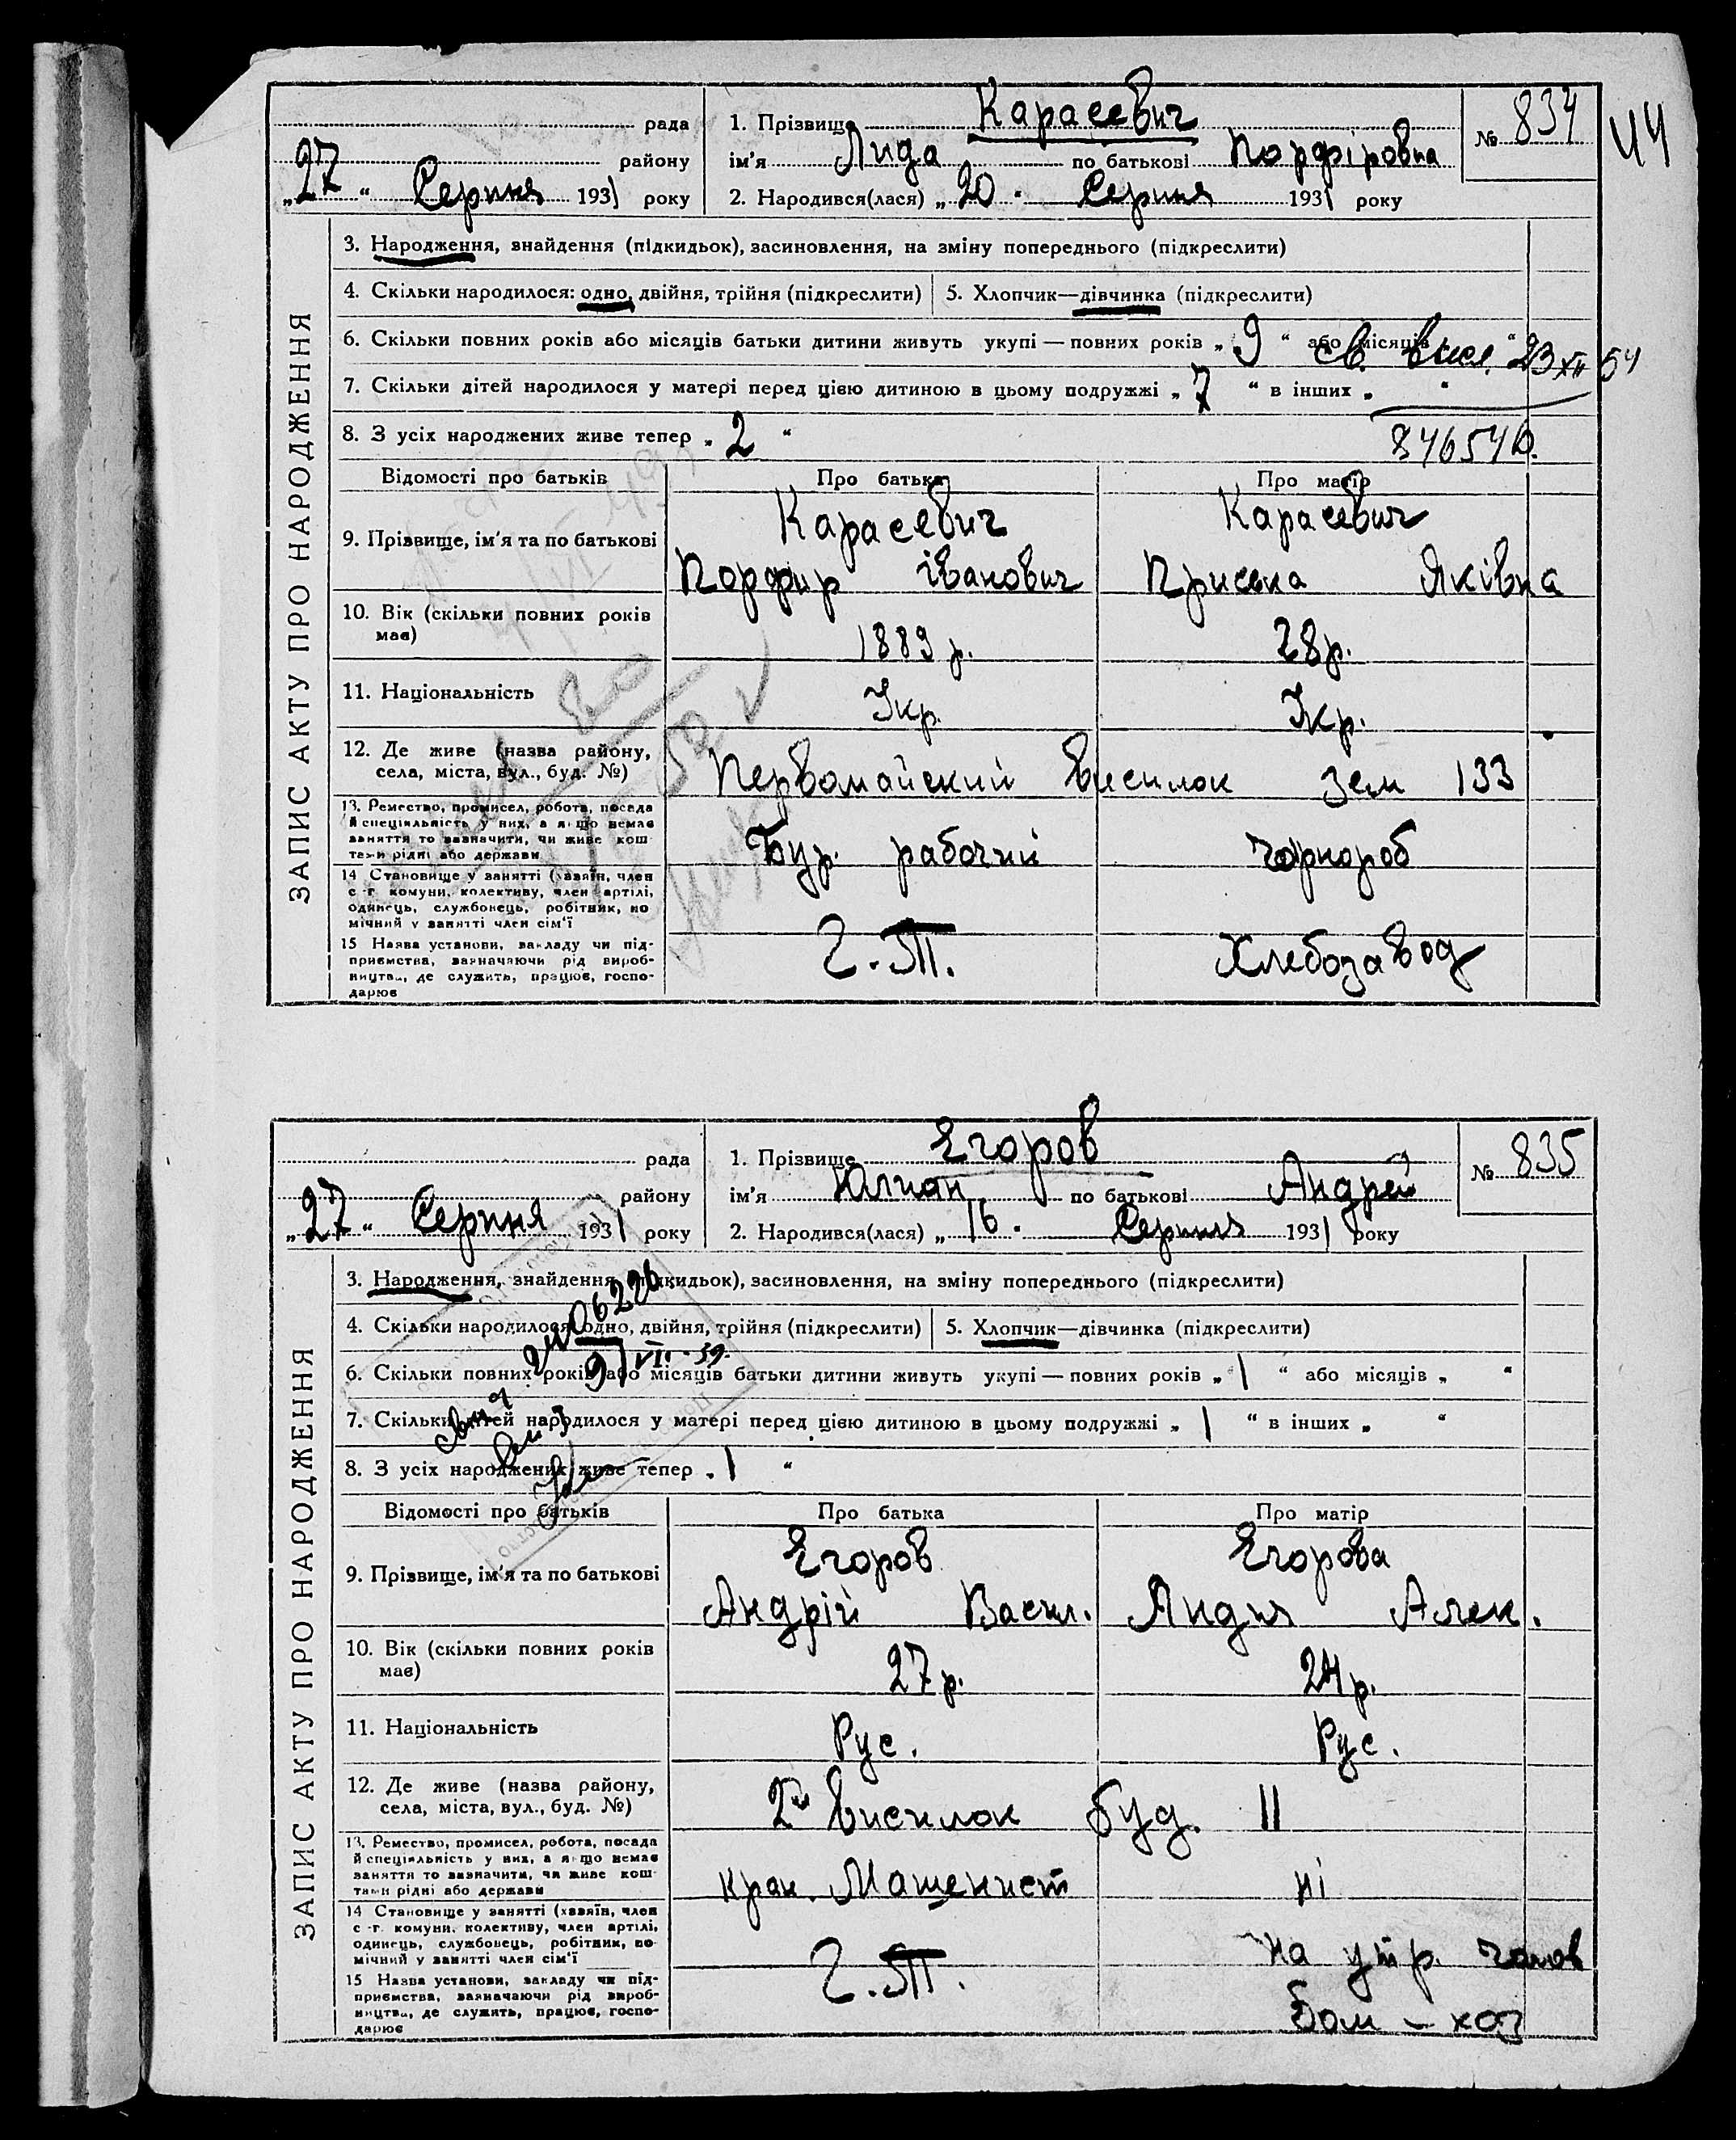 44
рада
району
„27“ Серпня 1931 року
1. Прізвище Карасевич
ім'я Лида по батькові Порфіровна
2. Народився(лася) „20“ Серпня 1931 року
№ 834
ЗАПИС АКТУ ПРО НАРОДЖЕННЯ
3. Народження, знайдення (підкидьок), засиновлення, на зміну попереднього (підкреслити)
4. Скільки народилося: одно, двійня, трійня (підкреслити)
5. Хлопчик—дівчинка (підкреслити)
6. Скільки повних років або місяців батьки дитини живуть укупі — повних років „9“ або місяців „ “
св. 23 XII 54
7. Скільки дітей народилося у матері перед цією дитиною в цьому подружжі „7“ в інших „ “
8. З усіх народжених живе тепер „2“
Відомості про батьків
Про батька
Про матір
9. Прізвище, ім'я та по батькові
Карасевич
Порфир Іванович
Карасевич
Приська Яківна
10. Вік (скільки повних років
має)
1889 р.
28 р.
11. Національність
Укр.
Укр.
12. Де живе (назва району,
села, міста, вул., буд. №)
Первомайский Висилок Зем 133
13. Ремество, промисел, робота, посада
й спеціяльність у них, а якщо немає
заняття то зазначити, чи живе кош-
тами рідні або держави
Бур. рабочий
чорнороб
14 Становище у занятті (хазяїн, член
с.-г. комуни, колективу, член артілі,
одинець, службовець, робітник, по
мічний у занятті член сім'ї
15 Назва установи, закладу чи під-
приємства, зазначаючи рід вироб-
ництва, де служить, працює, госпо-
дарює
Хлебозавод
рада
району
„27“ Серпня 1931 року
1. Прізвище Єгоров
ім'я Юлиан по батькові Андрей
2. Народився(лася) „16“ Серпня 1931 року
№ 835
ЗАПИС АКТУ ПРО НАРОДЖЕННЯ
3. Народження, знайдення (підкидьок), засиновлення, на зміну попереднього (підкреслити)
4. Скільки народилося: одно, двійня, трійня (підкреслити)
5. Хлопчик—дівчинка (підкреслити)
6. Скільки повних років або місяців батьки дитини живуть укупі — повних років „1“ або місяців „ “
7. Скільки дітей народилося у матері перед цією дитиною в цьому подружжі „1“ в інших „ “
8. З усіх народжених живе тепер „1“
Відомості про батьків
Про батька
Про матір
9. Прізвище, ім'я та по батькові
Єгоров
Андрій Васил.
Єгорова
Алек.
10. Вік (скільки повних років
має)
27 р.
24 р.
11. Національність
Рус.
Рус.
12. Де живе (назва району,
села, міста, вул., буд. №)
2й Висилок буд. 11
13. Ремество, промисел, робота, посада
й спеціяльність у них, а якщо немає
заняття то зазначити, чи живе кош-
тами рідні або держави
кран. Машенист
ні
14 Становище у занятті (хазяїн, член
с.-г. комуни, колективу, член артілі,
одинець, службовець, робітник, по-
мічний у занятті член сім'ї
на утр. чолов
15 Назва установи, закладу чи під-
приємства, зазначаючи рід вироб-
ництва, де служить, працює, госпо-
дарює
Дом - хоз